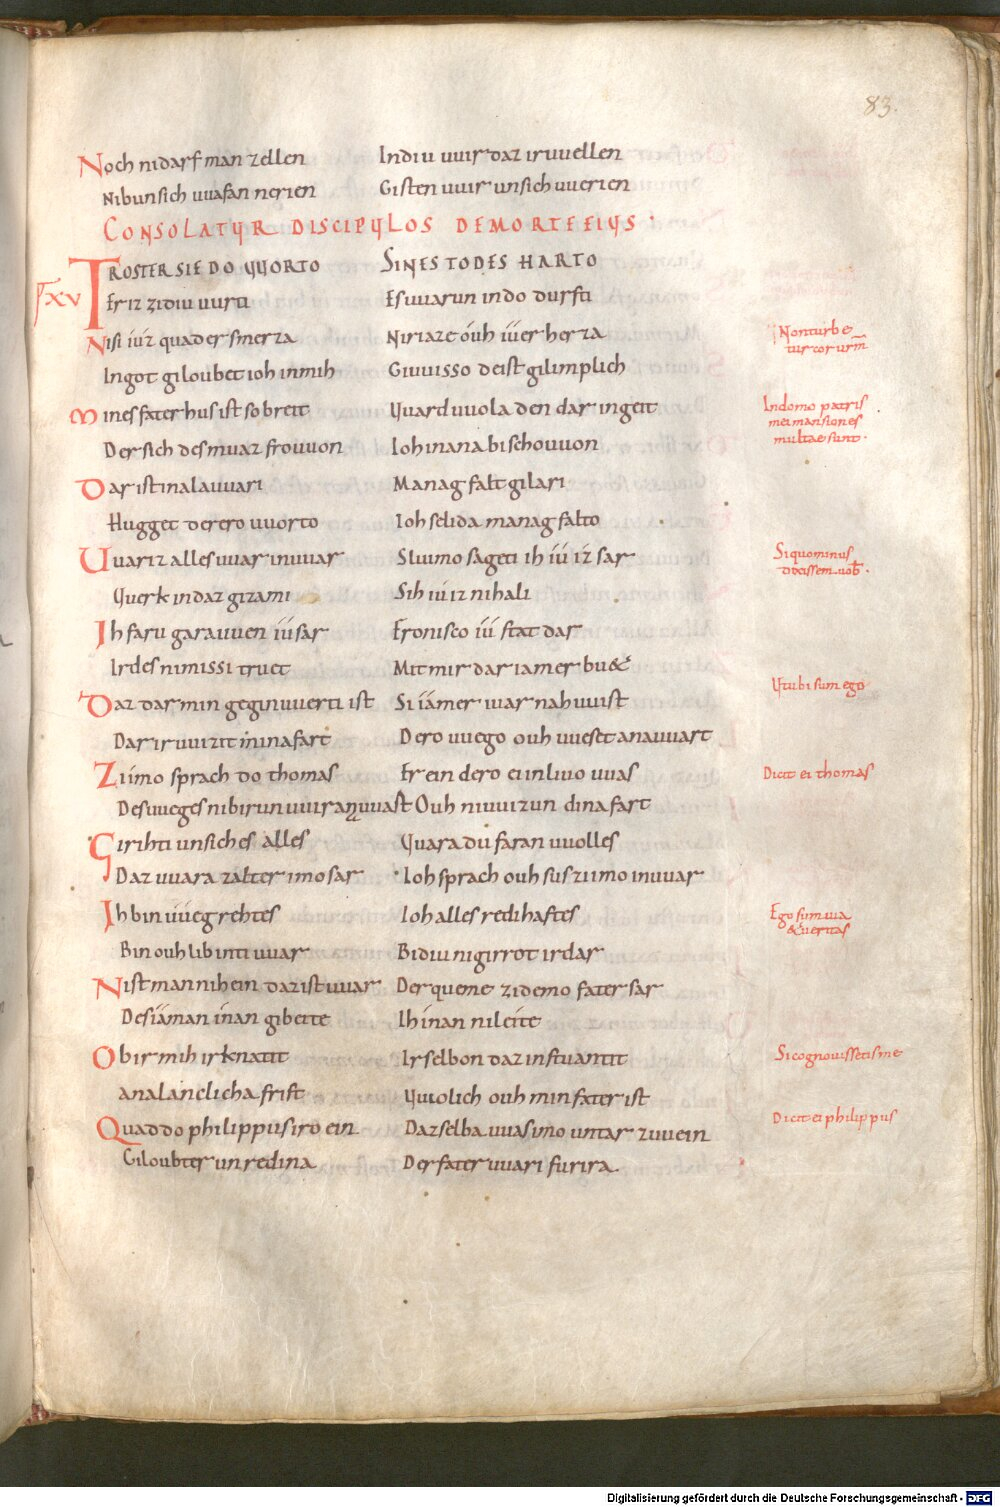 83.
Noch nidarf man zellen Indiu uuir daz iruuellen
Nibunsich uuafan nerien Gisten uuir unsich uuerien
CONSOLATUR DISCIPULOS DEMORTE EIUS·
XV
TROSTER SIE DO UUORTO SINES TODES HARTO
Er iz zidiu uurti Es uuarun indo durfti
Nisi iu iz quad er smerza Niriaze óuh iúer herza
Nonturbe
tur cor urm
Ingot giloubet ioh inmih Giuuisso deist gilimplich
Mines fater hus ist so breit Uuard uuola den dar ingeit
Indomo patris
mei mansiones
multae sunt·
Der sich des muaz frouuon Ioh inana bischouuon
Dar ist inalauuari Manag falt gilari
Hugget dero uuorto Ioh selida manag falto
Uuar iz alles uuar inuuar Sliumo sageti ih iú iz sar
Siquominus
dixissem uob·
Uuerk indaz girami Sih iú iz nihali
Ih faru garauuen iú sar Fronisco iú stat dar
Ir des nimissi truet Mit mir dar iamer bu&
Daz dar min geginuuerti ist Si iámer iuar nah uuist
Utubi sum ego
Dar ir uuizit mina fart Dero uuego ouh uueset anauuart
Ziímo sprach do thomas Er ein dero einliuo uuas
Dicit ei thomas
Des uueges nibirun uuir anuuast Ouh niuuizun dina fart
Girihti unsih es alles Uuara dú faran uuolles
Daz uuara zalter imo sar ·Ioh sprach ouh sus ziimo inuuar
Ih bin uúeg rehtes Ioh alles redihaftes
Ego sum uia
&ueritas
Bin ouh lib inti uuar Bidiu nigirrot ir dar
Nist man nihein daz ist uuar Der queme zi demo fater sar
Des iáman ínan gibeite Ih ínan nileite
Obir mih irknatit Ir selbon daz instuantit
Sicognouissetisme
analanclicha frist Uuiolich ouh min fater ist
Quad do philippus iro ein Daz selba uuas imo untar zuuein
Dicit ei philippus
Giloubter unredina Der fater uuari furira
Digitalisierung gefördert durch die Deutsche Forschungsgemeinschaft - DFG